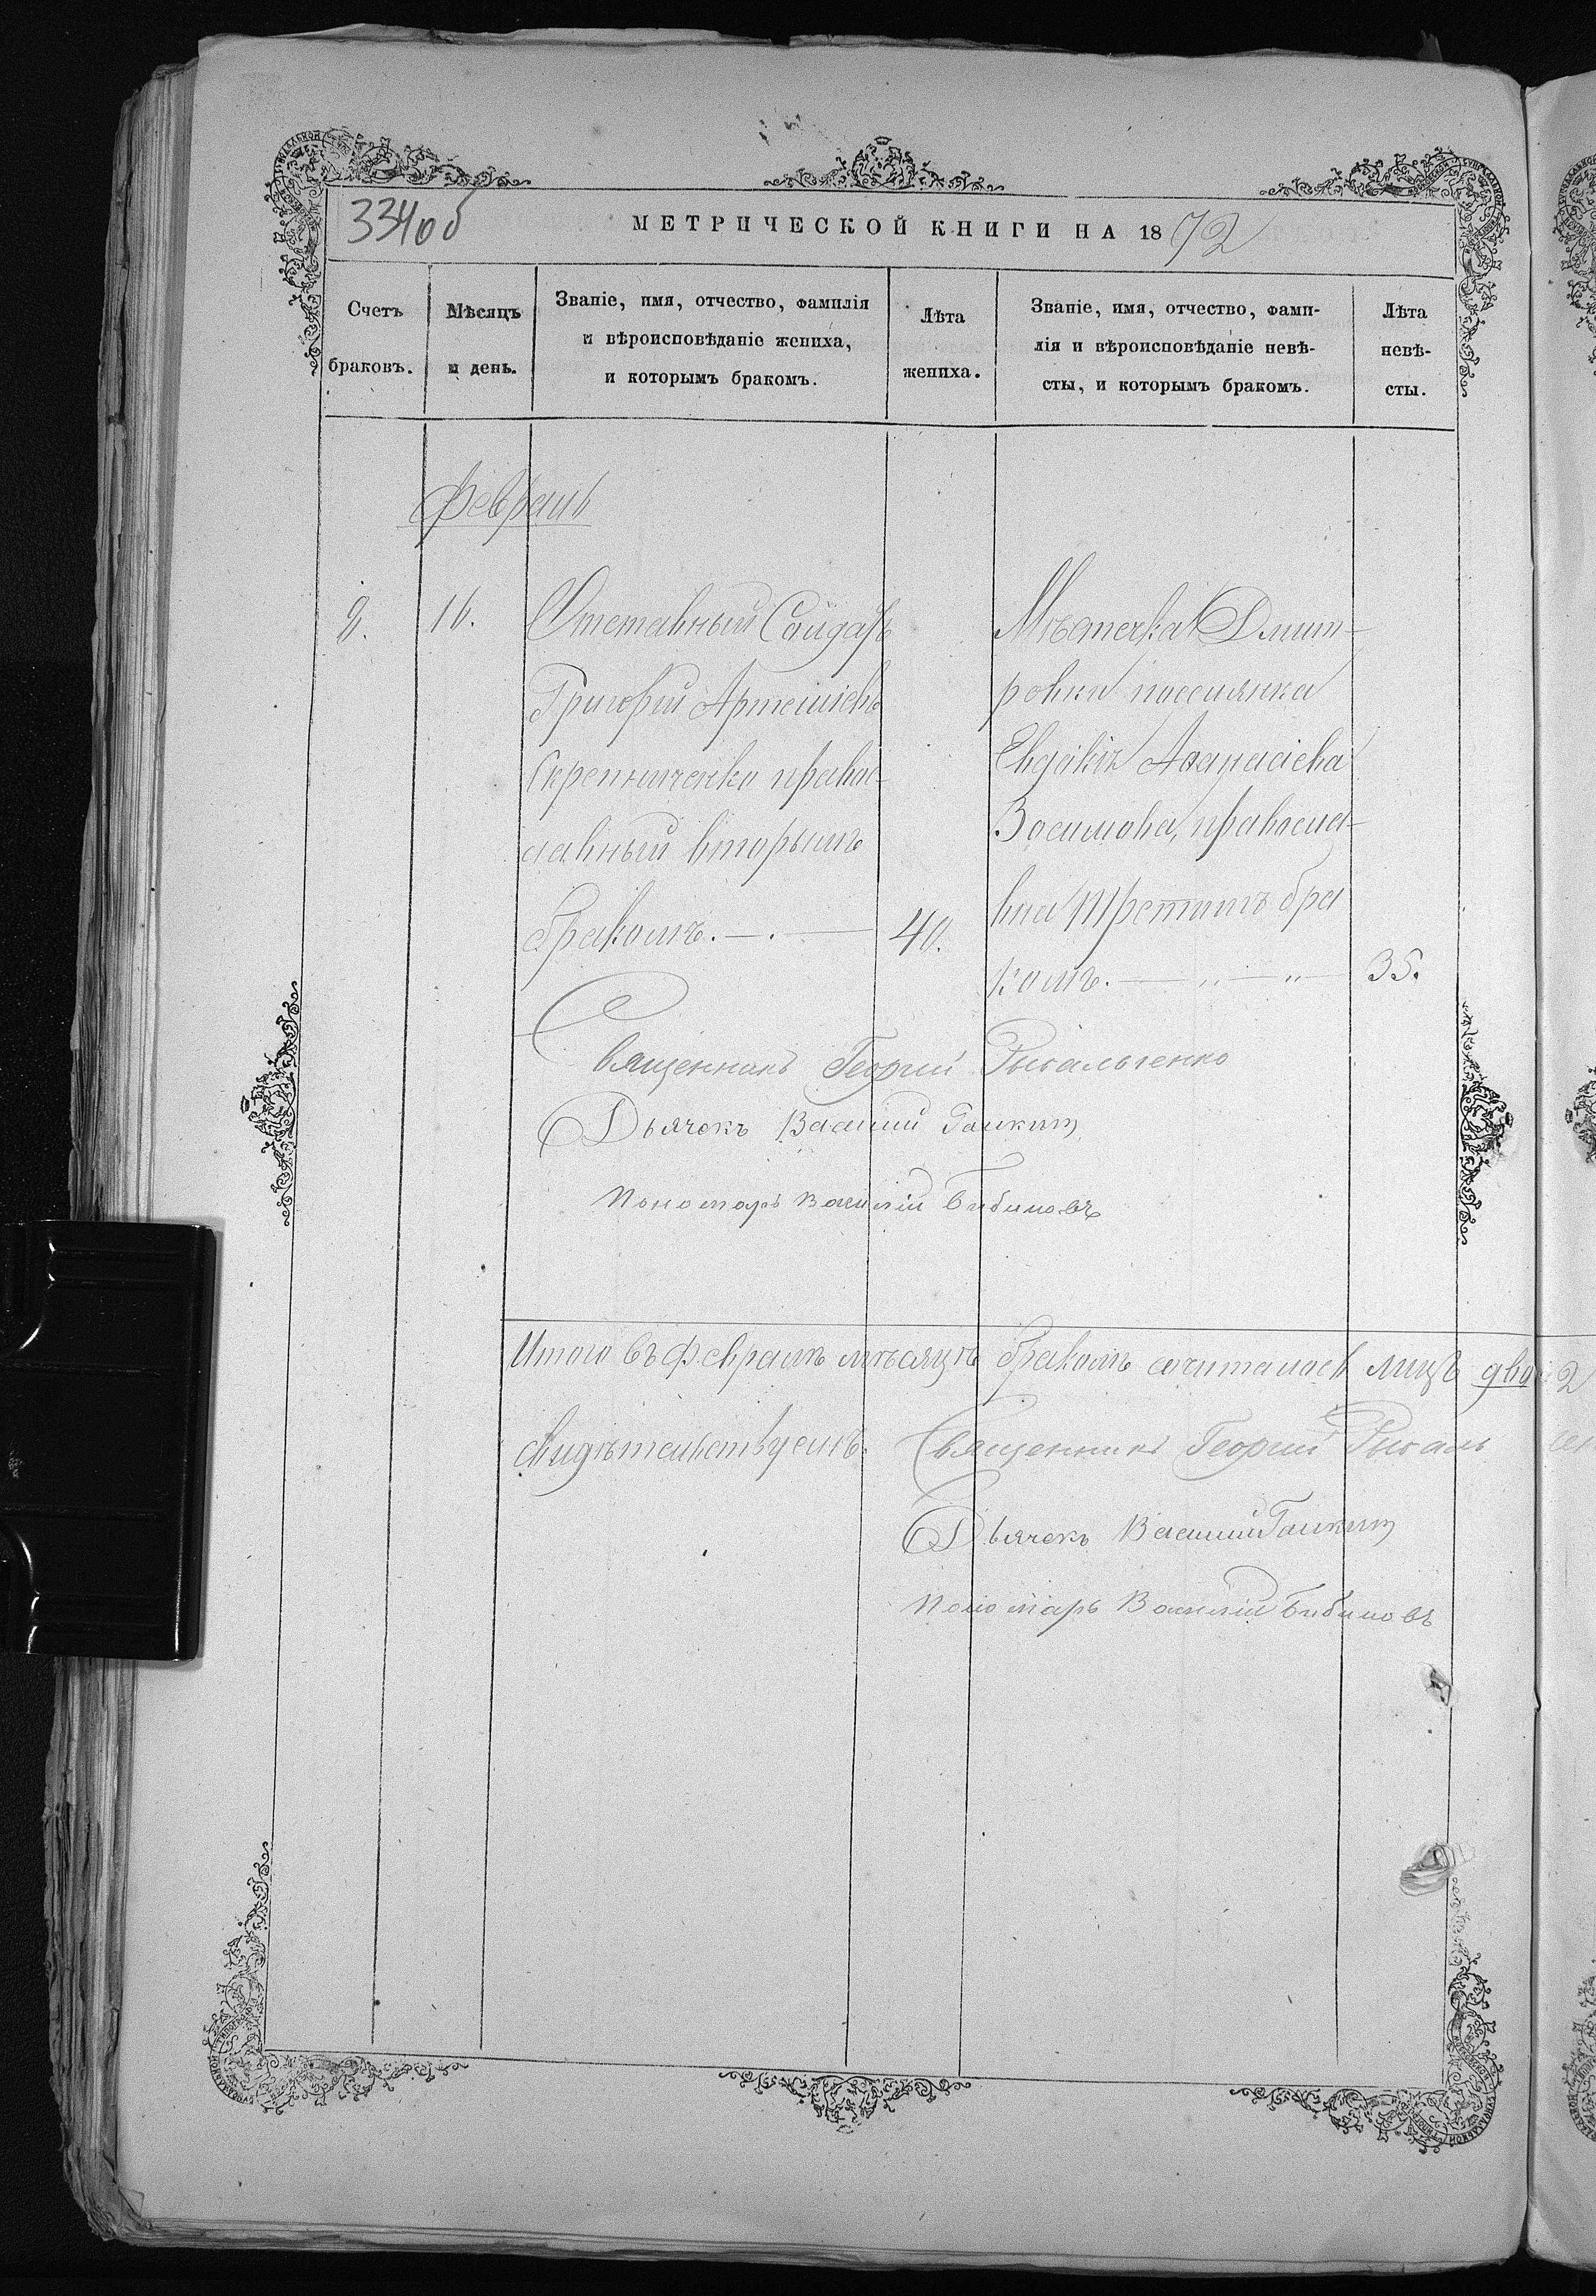 334об
МЕТРИЧЕСКОЙ КНИГИ НА 1872
Счетъ браковъ.
Мѣсяцъ и день.
Званіе, имя, отчество, фамилія
и вѣроисповѣданіе жениха,
и которымъ бракомъ.
Лѣта жениха.
Званіе, имя, отчество, фами-
лія и вѣроисповѣданіе невѣ-
сты, и которымъ бракомъ.
Лѣта невѣ-
сты.
Февраль
2.
16.
Отставный Солдатъ
Григорій Артеміевъ
Скрепниченко правос-
лавный вторымъ
бракомъ.
40.
Мѣстечка Дмит-
ровки поселянка
Евдокія Аѳанасіева
Зосимова, правосла-
вна третимъ бра
комъ.
35.
Священникъ Георгій
Дьячекъ Василий Галкин
Пономарь Василій Бибиковъ
Итого въ февралѣ мѣсяцѣ бракомъ сочиталось лицъ двое 2
свидѣтельствуемъ. Священникъ Георгій
Дьячекъ Василий Галкин
Пономарь Василій Бибиковъ